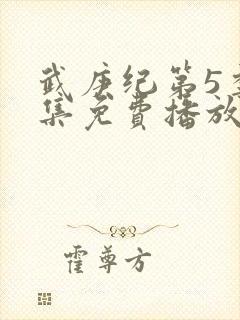 武庚纪第5季
集免费播放
霍尊方